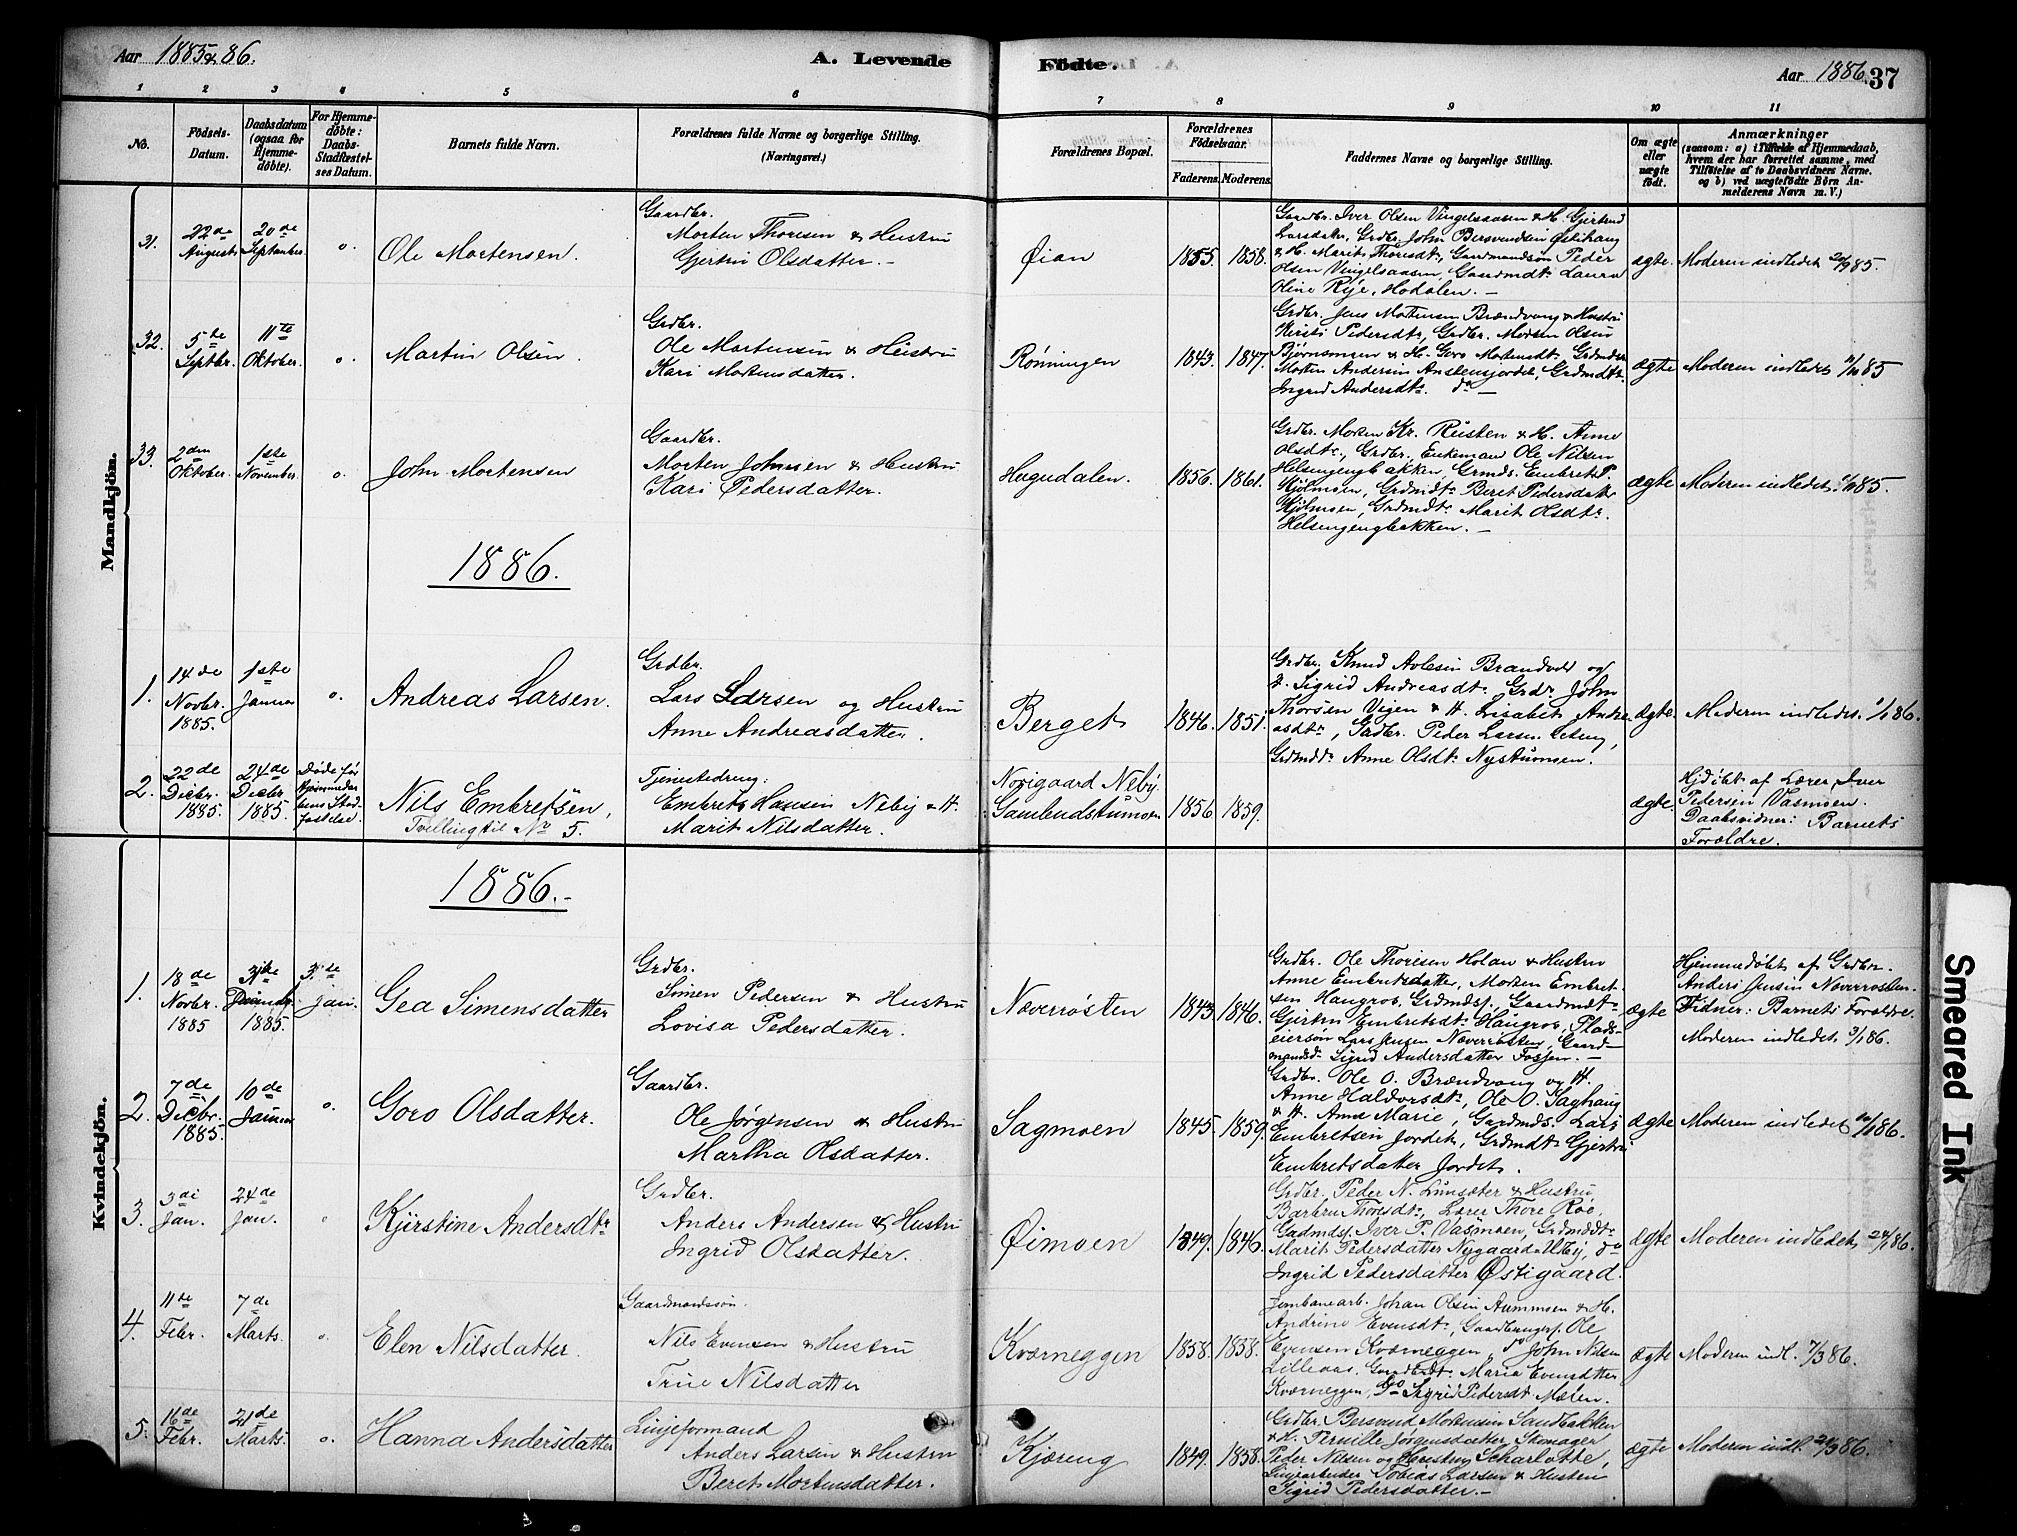 Aar 1885 & 86.
A. Levende Fødte.
Aar 1886. 37
1 2 3 4 5 6 7 8 9 10 11
No.
Födsels-Datum.
Daabsdatum (ogsaa for Hjemme-døbte).
For Hjemme-døbte: Daabs-Stadfæstel-ses Datum.
Barnets fulde Navn.
Forældrenes fulde Navne og borgerlige Stilling.
(Næringsvei.)
Forældrenes Bopæl.
Forældrenes Födselsaar.
Faderens. Moderens.
Faddernes Navne og borgerlige Stilling.
Om ægte eller uægte født.
Anmærkninger
(saasom: a) i Tilfælde af Hjemmedaab,
hvem der har forrettet samme, med
Tilføielse af to Daabsvidners Navne.
og b) ved uægtefødte Børn An-
melderens Navn m. V.)
Mandkjön.
31. 22de August 20de September o. Ole Mortensen.
Gaardbr.
Morten Thoresen & Hustru
Gjertru Olsdatter. -
Øian 1855. 1858.
Gaardbr. Iver Olsen Vingelsaasen & H. Gjertrud
Larsdatter, Grdbr. John Bersvendsen Østihaug
& H. Marit Thoresdt., Gaardmandsøn Peder
Olsen Vingelsaasen, Gaardmdt. Laura
Oline Rye, Hodalen. -
ægte. Moderen indledet 20/9 85.
32. 5te Septbr. 11te Oktober. o. Martin Olsen.
Grdbr.
Ole Mortensen & Hustru
Kari Mortensdatter.
Rønningen 1843. 1847.
Grdbr. Jens Mortensen Brændvang & Hustru
Kirsti Pedersdt., Grdbr. Morten Olsen
Bjørnsmoen & H. Goro Mortensdt.
Morten Andersen Anstensjordet, Grdmdtr.
Ingrid Andersdt. do -
ægte Moderen indledet 11/10 85
33. 2den Oktober. 1ste November. o. John Mortensen
Gaardbr.
Morten Johnsen & Hustru
Kari Pedersdatter.
Hugudalen. 1856. 1861.
Grdbr. Morten Kr. Rusten & H. Anne
Olsdt., Grdbr. Enkeman Ole Nilsen
Helsengengbakken, Grmds. Embret P.
Kjølmoen, Grdmdt. Beret Pedersdatter
Kjølmoen, Grdmdt. Marit Olsdt.
Helsengengbakken. -
ægte Moderen indledet 1/11 85.
1886.
1. 14de Novbr. 1885. 1ste Januar o. Andreas Larsen.
Grdbr.
Lars Larsen og Hustru
Anne Andreasdatter.
Berget 1846. 1851.
Grdbr. Knud Avlesen Brandvold og
H. Sigrid Andreasdt. Grdr. John
Thorsen Vigen & H. Lisabet Andre-
asdt., Grdbr. Peder Larsen
Grdmdt. Anne Olsdt. Nystumoen.
ægte. Moderen indledet. 1/1 86.
2. 22de Decbr. 1885. 24de Decbr 1885. Døde før Hjemmedaa-bens Stad-fæstelse
Nils Embretsen,
Tvilling til No 5.
Tjenestedreng:
Embret Hansen Neby & H.
Marit Nilsdatter.
Norigaard Neby.
Gamlundstumoen 1856 1859.
ægte. Hjdøbt af Lærer Iver
Pedersen Vasmoen.
Daabsvidner: Barnets
Forældre.
Kvindekjön.
1886. -
1. 18de Novbr. 1885 31te Decembr. 1885. 3de Jan. Gea Simensdatter
Grdbr.
Simen Pedersen & Hustru
Lovisa Pedersdatter.
Næverrøsten 1843 1846.
Grdbr. Ole Thoresen Holan & Hustru
Anne Embretsdatter, Morten Embret-
sen Haugros, Grdmds., Gaardmdt.
Gjertru Embretsdt. Haugros, Plads-
eiersøn Lars Jensen Næverrøsten, Gaard-
mandsd. Sigrid Andersdatter Fossjen. -
ægte Hjemmedøbt af Grdbr.
Anders Jensen Næverrøsten.
Vidner: Barnets Forældre.
Moderen indledet. 3/1 86.
2. 7de Decbr. 1885. 10de Januar o. Goro Olsdatter.
Gaardbr.
Ole Jørgensen & Hustru
Martha Olsdatter.
Sagmoen 1845. 1859.
Grdbr. Ole O. Brændvang og H.
Anne Haldorsdt., Ole O. Saghaug
& H. Anne Marie, Gardmds. Lars
Embretsen Jordet, Grdmdt. Gjertru
Embretsdatter Jordet.
ægte Moderen indledet 10/1 86.
3. 3di Jan. 24de Jan. o Kjirstine Andersdtr
Grdbr.
Anders Andersen & Hustru
Ingrid Olsdatter.
Øimoen 1849. 1846.
Grdbr. Peder N. Lunsæter & Hustru
Barbru Thoresdt., Lærer Thore Røe,
Gadmdsf. Iver P. Vasmoen, Grdmddt.
Marit Pedersdatter Nygaard Utby, do
Ingrid Pedersdatter Østigaard.
ægte Moderen indledet 24/1 86.
4. 11de Febr. 7de Marts. o. Elen Nilsdatter.
Gaardmandssøn.
Nils Evensen & Hustru
Trine Nilsdatter
Kværneggen 1858. 1858.
Jernbanearb. Johan Olsen Aummoen & H.
Andrine Evensdt., Gaardbrugersf. Ole
Evensen Kværneggen, do John Nilsen
Lilleaas. Maria Evensdatter
Kværneggen, Do Sigrid Pedersdt Mælen.
ægte Moderen indl. 7/3 86.
5. 16de Febr. 21de Marts. o. Hanna Andersdatter
Linjeformand
Anders Larsen & Hustru
Beret Mortensdatter.
Kjæreng 1849. 1858.
Grdbr. Bersvend Mortensen Sandbakken
& H. Pernille Jørgensdatter, Skomager
Peder Nilsen og Hustru Scharlotte,
Linjearbeider Tobias Larsen & Hustru
Sigrid Pedersdatter. -
ægte Moderen indl. 21/3 86.
Smeared Ink